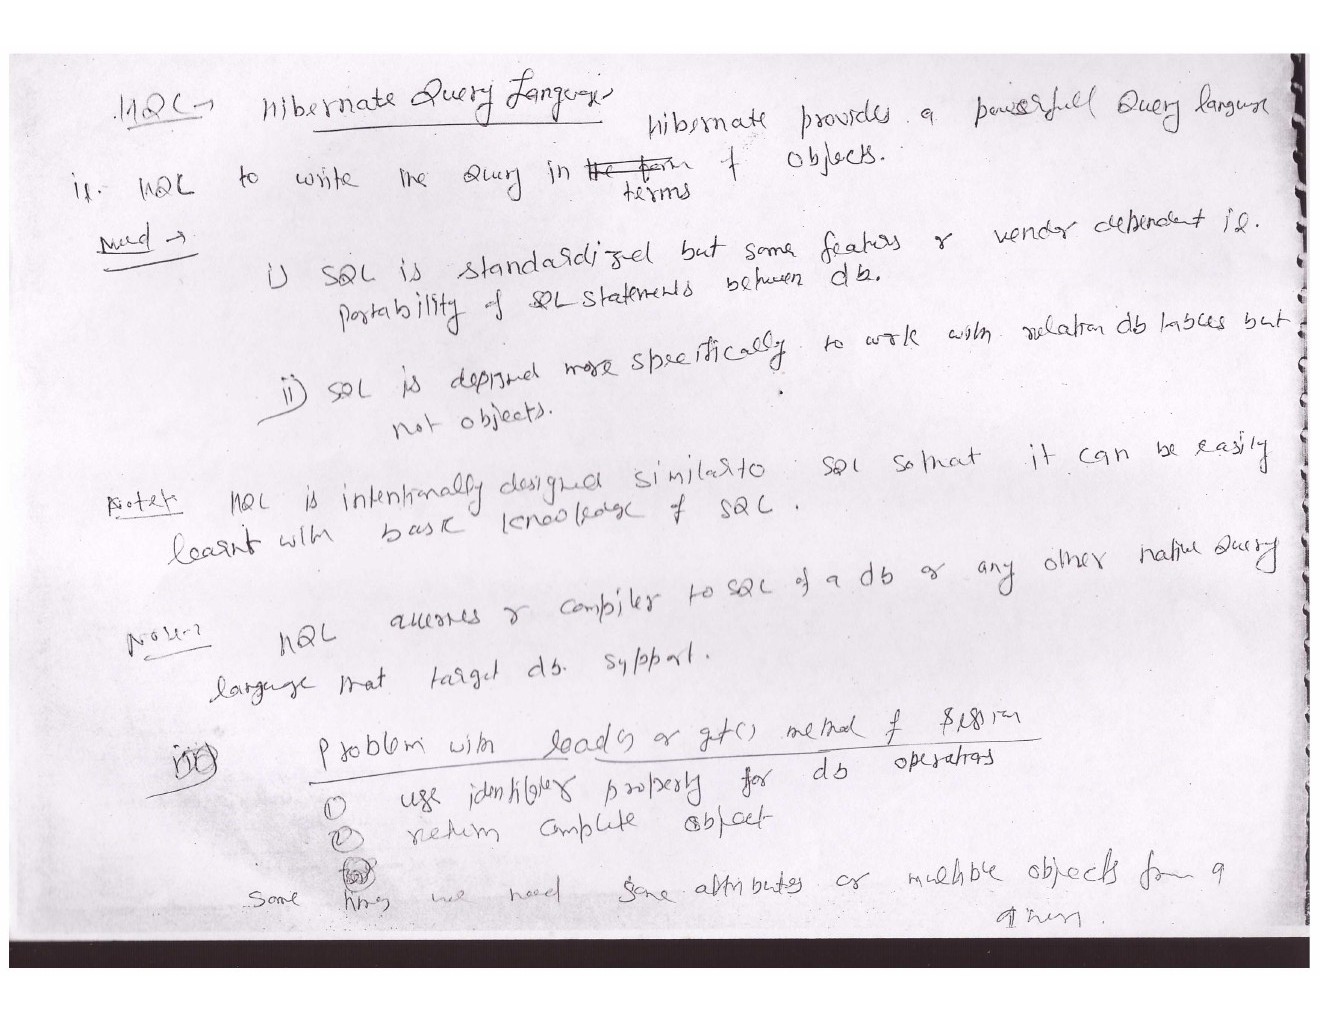 HQL → Hibernate Query Language
Hibernate provides a powerfull Query language
ie. HQL to write the Query in the form terms of objects.
Need →
i) SQL is standardized but some featurs r vendor dependent ie.
portability of SQL statements between db.
ii) SQL is designed more specifically to work with relation db tables but
not objects.
Note1 HQL is intentionally designed similar to SQL so that it can be easily
learnt with basic knowledge of SQL.
Note-2 HQL queries r compiler to SQL of a db or any other native Query
language that target db. support.
iii) Problem with load() or get() method of session
① use identifier property for db operations
② return complete object
Some times we need some attributes or multiple objects from a